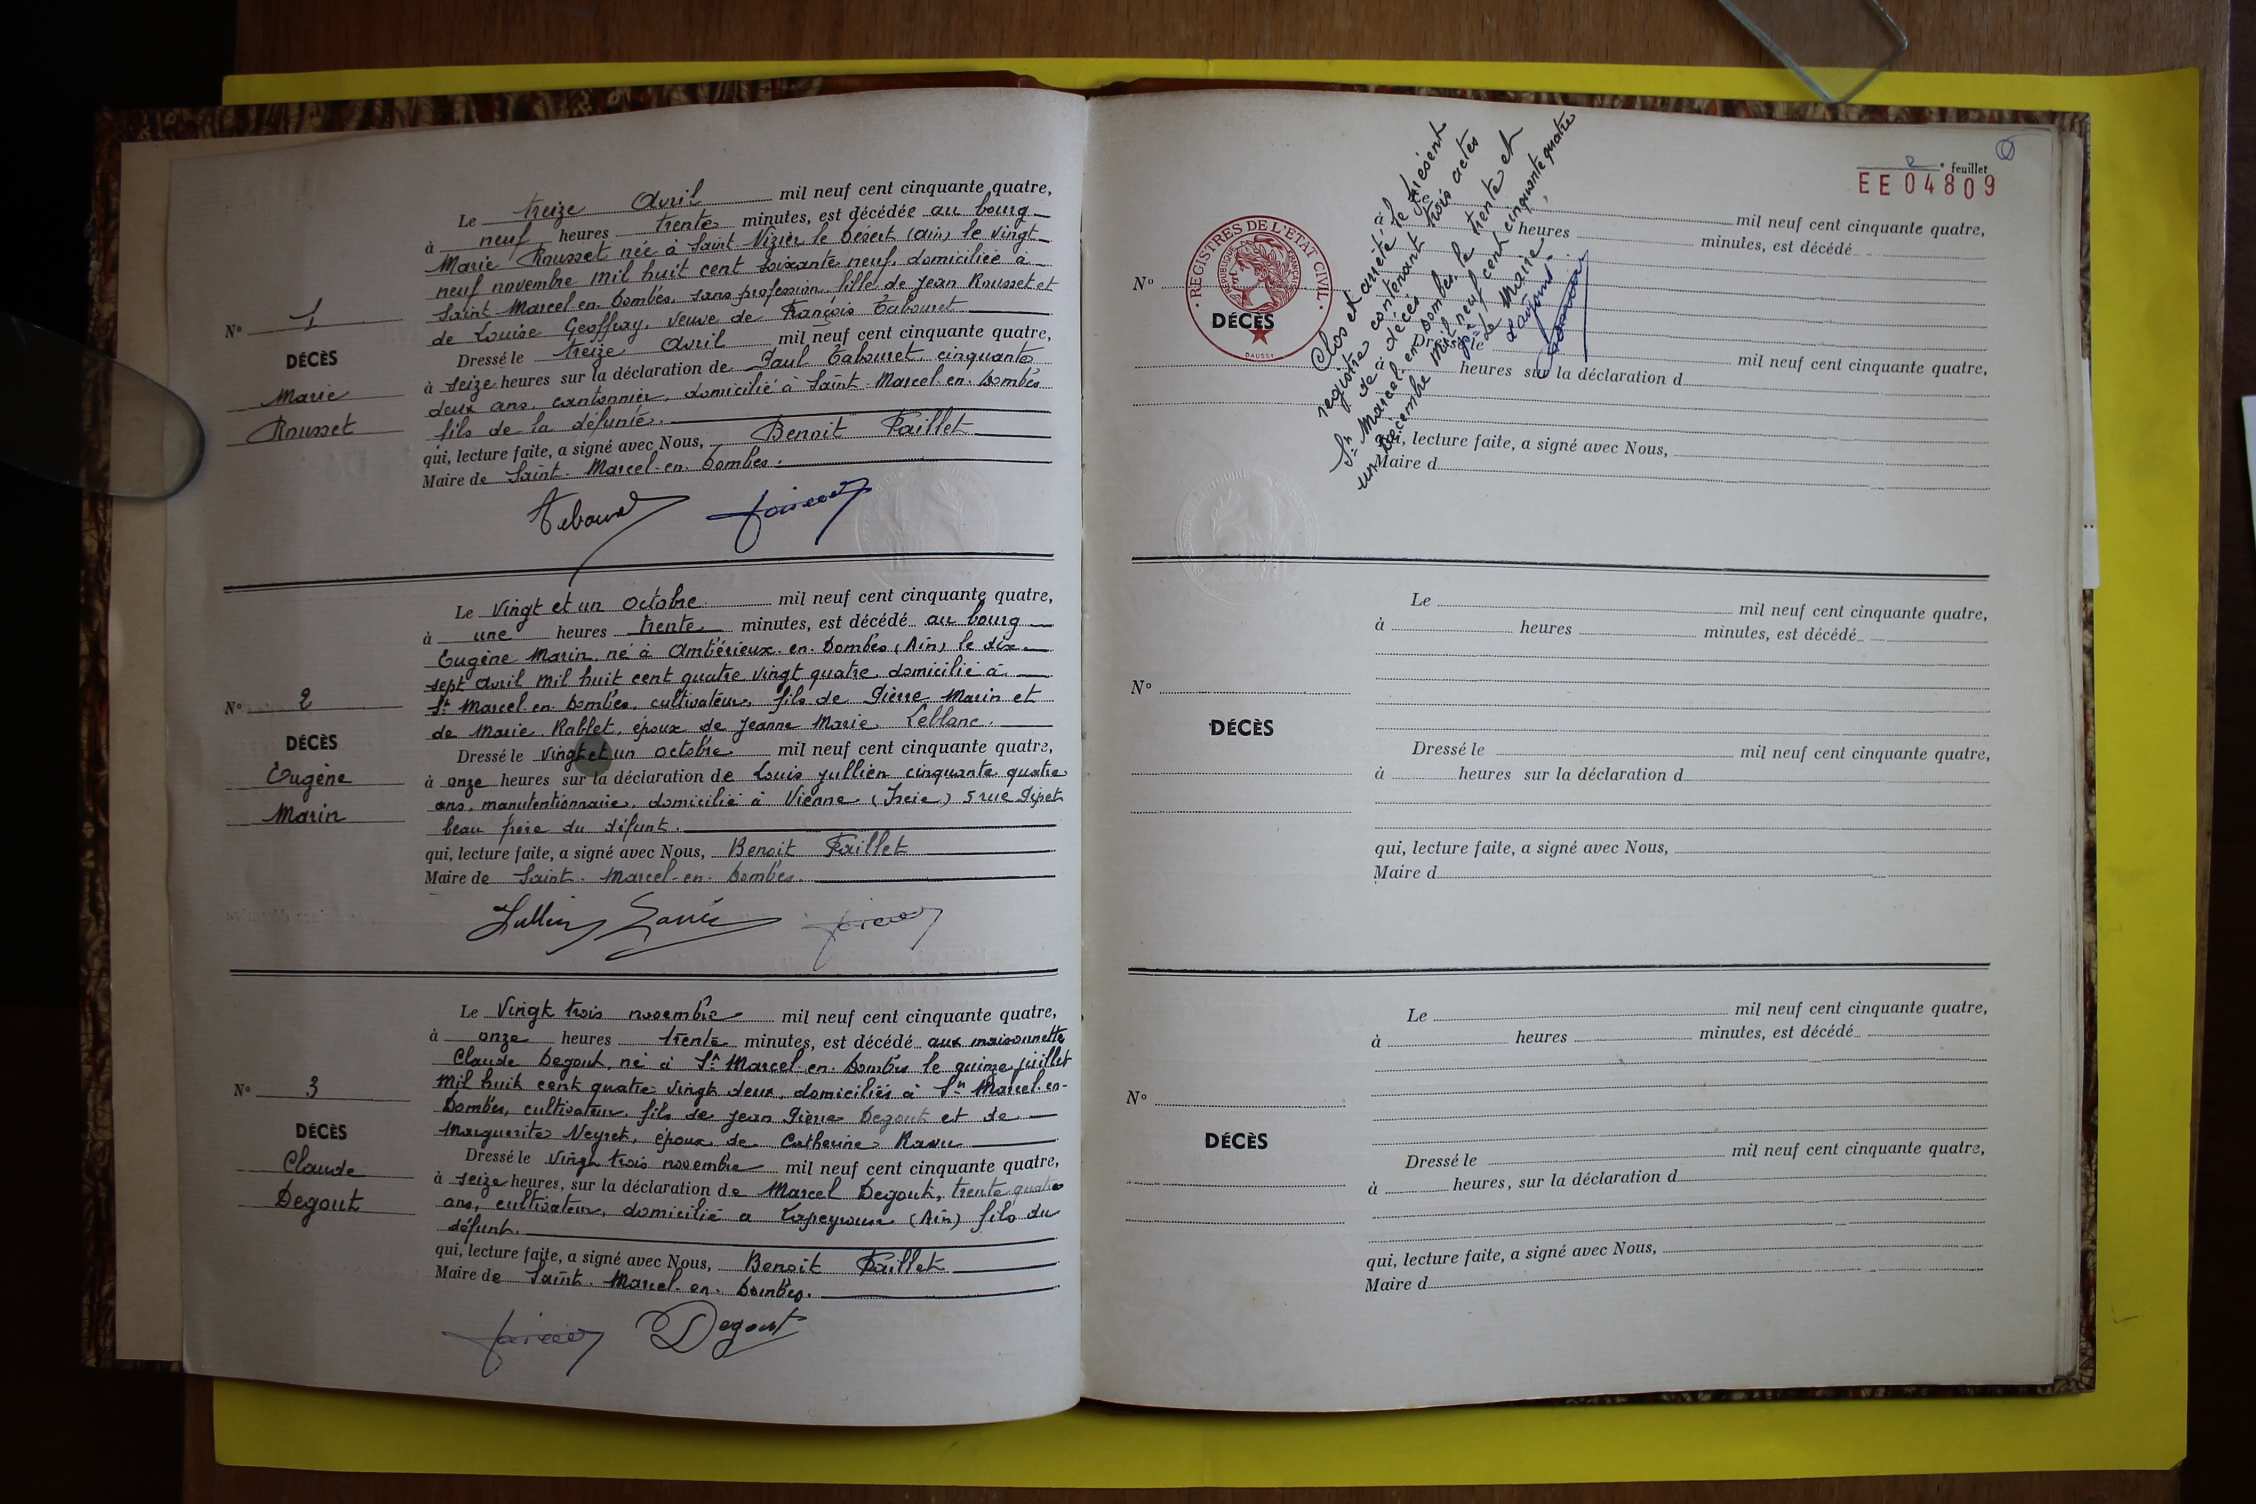 Le treize Avril mil neuf cent cinquante quatre,
à neuf heures trente minutes, est décédée au bourg
Marie Rousset née à Saint Nizier le Désert (Ain) le vingt
neuf novembre mil huit cent soixante neuf, domiciliée à
Saint Marcel en Dombes, sans profession, fille de Jean Rousset et
de Louise Geoffray, veuve de François Tabouret
N° 1
DÉCÈS
Marie
Rousset
Dressé le treize Avril mil neuf cent cinquante quatre,
à seize heures sur la déclaration de Paul Tabouret, cinquante
deux ans, cantonnier, domicilié à Saint-Marcel-en-Dombes
fils de la défunte.
qui, lecture faite, a signé avec Nous, Benoit Paillet
Maire de Saint-Marcel-en-Dombes.
Le Vingt et un Octobre mil neuf cent cinquante quatre,
à une heures trente minutes, est décédé au bourg
Eugène Marin, né à Ambérieux-en-Dombes (Ain) le dix
sept Avril mil huit cent quatre vingt quatre, domicilié à
St Marcel-en-Dombes, cultivateur, fils de Pierre Marin et
de Marie Rablet, époux de Jeanne Marie Leblanc.
N° 2
DÉCÈS
Eugène
Marin
Dressé le vingt et un octobre mil neuf cent cinquante quatre,
à onze heures sur la déclaration de Louis Jullien cinquante quatre
ans, manutentionnaire, domicilié à Vienne (Isère) 5 rue Pipet
beau frère du défunt.
qui, lecture faite, a signé avec Nous, Benoit Paillet
Maire de Saint-Marcel-en-Dombes.
Le Vingt trois novembre mil neuf cent cinquante quatre,
à onze heures trente minutes, est décédé aux maisonnettes
Claude Degout, né à St Marcel-en-Dombes le quinze juillet
mil huit cent quatre vingt deux, domiciliés à St Marcel-en-
Dombes, cultivateur, fils de Jean Pierre Degout et de
Marguerite Neyret, époux de Catherine Ravu
N° 3
DÉCÈS
Claude
Degout
Dressé le vingt trois novembre mil neuf cent cinquante quatre,
à seize heures, sur la déclaration de Marcel Degout, trente quatre
ans, cultivateur, domicilié a Lapeyrouse (Ain) fils du
défunt.
qui, lecture faite, a signé avec Nous, Benoit Paillet
Maire de Saint-Marcel-en-Dombes.
Degout
2e feuillet
EE04809
REGISTRES DE L'ÉTAT CIVIL
RÉPUBLIQUE FRANÇAISE
DAUSSY
Clos et arrêté le présent
registre contenant trois actes
de décès à
St Marcel-en-Dombes, le trente et
un Décembre mil neuf cent cinquante quatre
le Maire
mil neuf cent cinquante quatre,
heures minutes, est décédé
N°
DÉCÈS
mil neuf cent cinquante quatre,
heures sur la déclaration d
qui, lecture faite, a signé avec Nous,
Maire d
Le mil neuf cent cinquante quatre,
à heures minutes, est décédé
N°
DÉCÈS
Dressé le mil neuf cent cinquante quatre,
à heures sur la déclaration d
qui, lecture faite, a signé avec Nous,
Maire d
Le mil neuf cent cinquante quatre,
à heures minutes, est décédé
N°
DÉCÈS
Dressé le mil neuf cent cinquante quatre,
à heures, sur la déclaration d
qui, lecture faite, a signé avec Nous,
Maire d